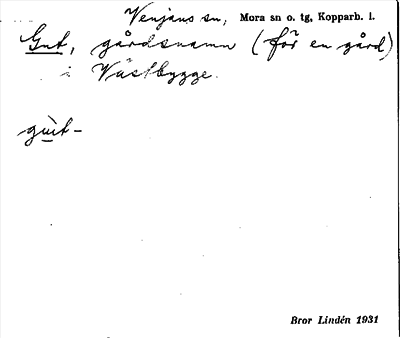 Venjans sn, Mora sn o. tg, Kopparb. l.
Gut, gårdsnamn (för en gård)
i Västbygge.
gùt-
Bror Lindén 1931